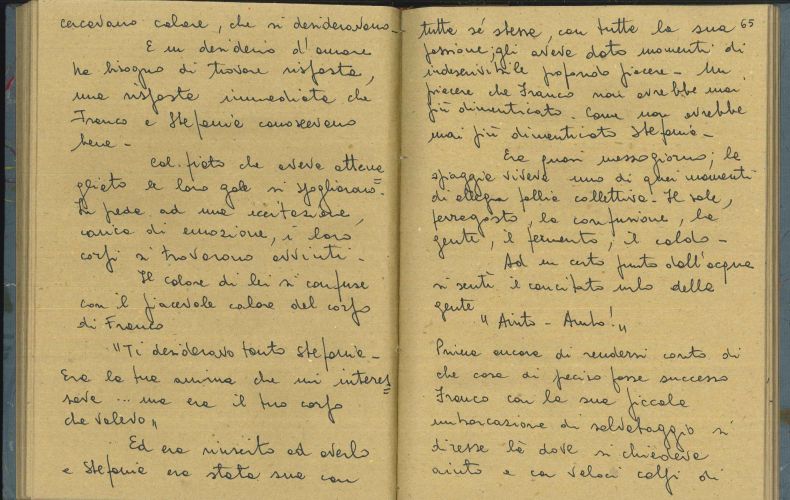 cercavano calore, che si desideravano -
E un desiderio d'amore
ha bisogno di trovare risposta,
una risposta immediata che
Franco e Stefania conoscevano
bene -
Col fiato che aveva atten=
gliato le loro gole si spogliarono.
In preda ad una eccitazione,
carica di emozione, i loro
corpi si trovarono avvinti -
Il calore di lei si confuse
con il piacevole calore del corpo
di Franco
"Ti desideravo tanto Stefania -
Era la tua anima che mi interes=
sava ... ma era il tuo corpo
che volevo"
Ed era riuscito ad averlo
e Stefania era stata sua con
65
tutta sé stessa, con tutta la sua
passione; gli aveva dato momenti di
indescrivibile profondo piacere - Un
piacere che Franco non avrebbe mai
più dimenticato. Come non avrebbe
mai più dimenticato Stefania -
Era quasi mezzogiorno; la
spiaggia viveva uno di quei momenti
di allegra follia collettiva - Il sole,
ferragosto, la confusione, la
gente, il fermento, il caldo -
Ad un certo punto dall'acqua
si sentì il concitato urlo della
gente
"Aiuto - Aiuto!"
Prima ancora di rendersi conto di
che cosa di preciso fosse successo
Franco con la sua piccola
imbarcazione di salvataggio si
diresse là dove si chiedeva
aiuto e con veloci colpi di